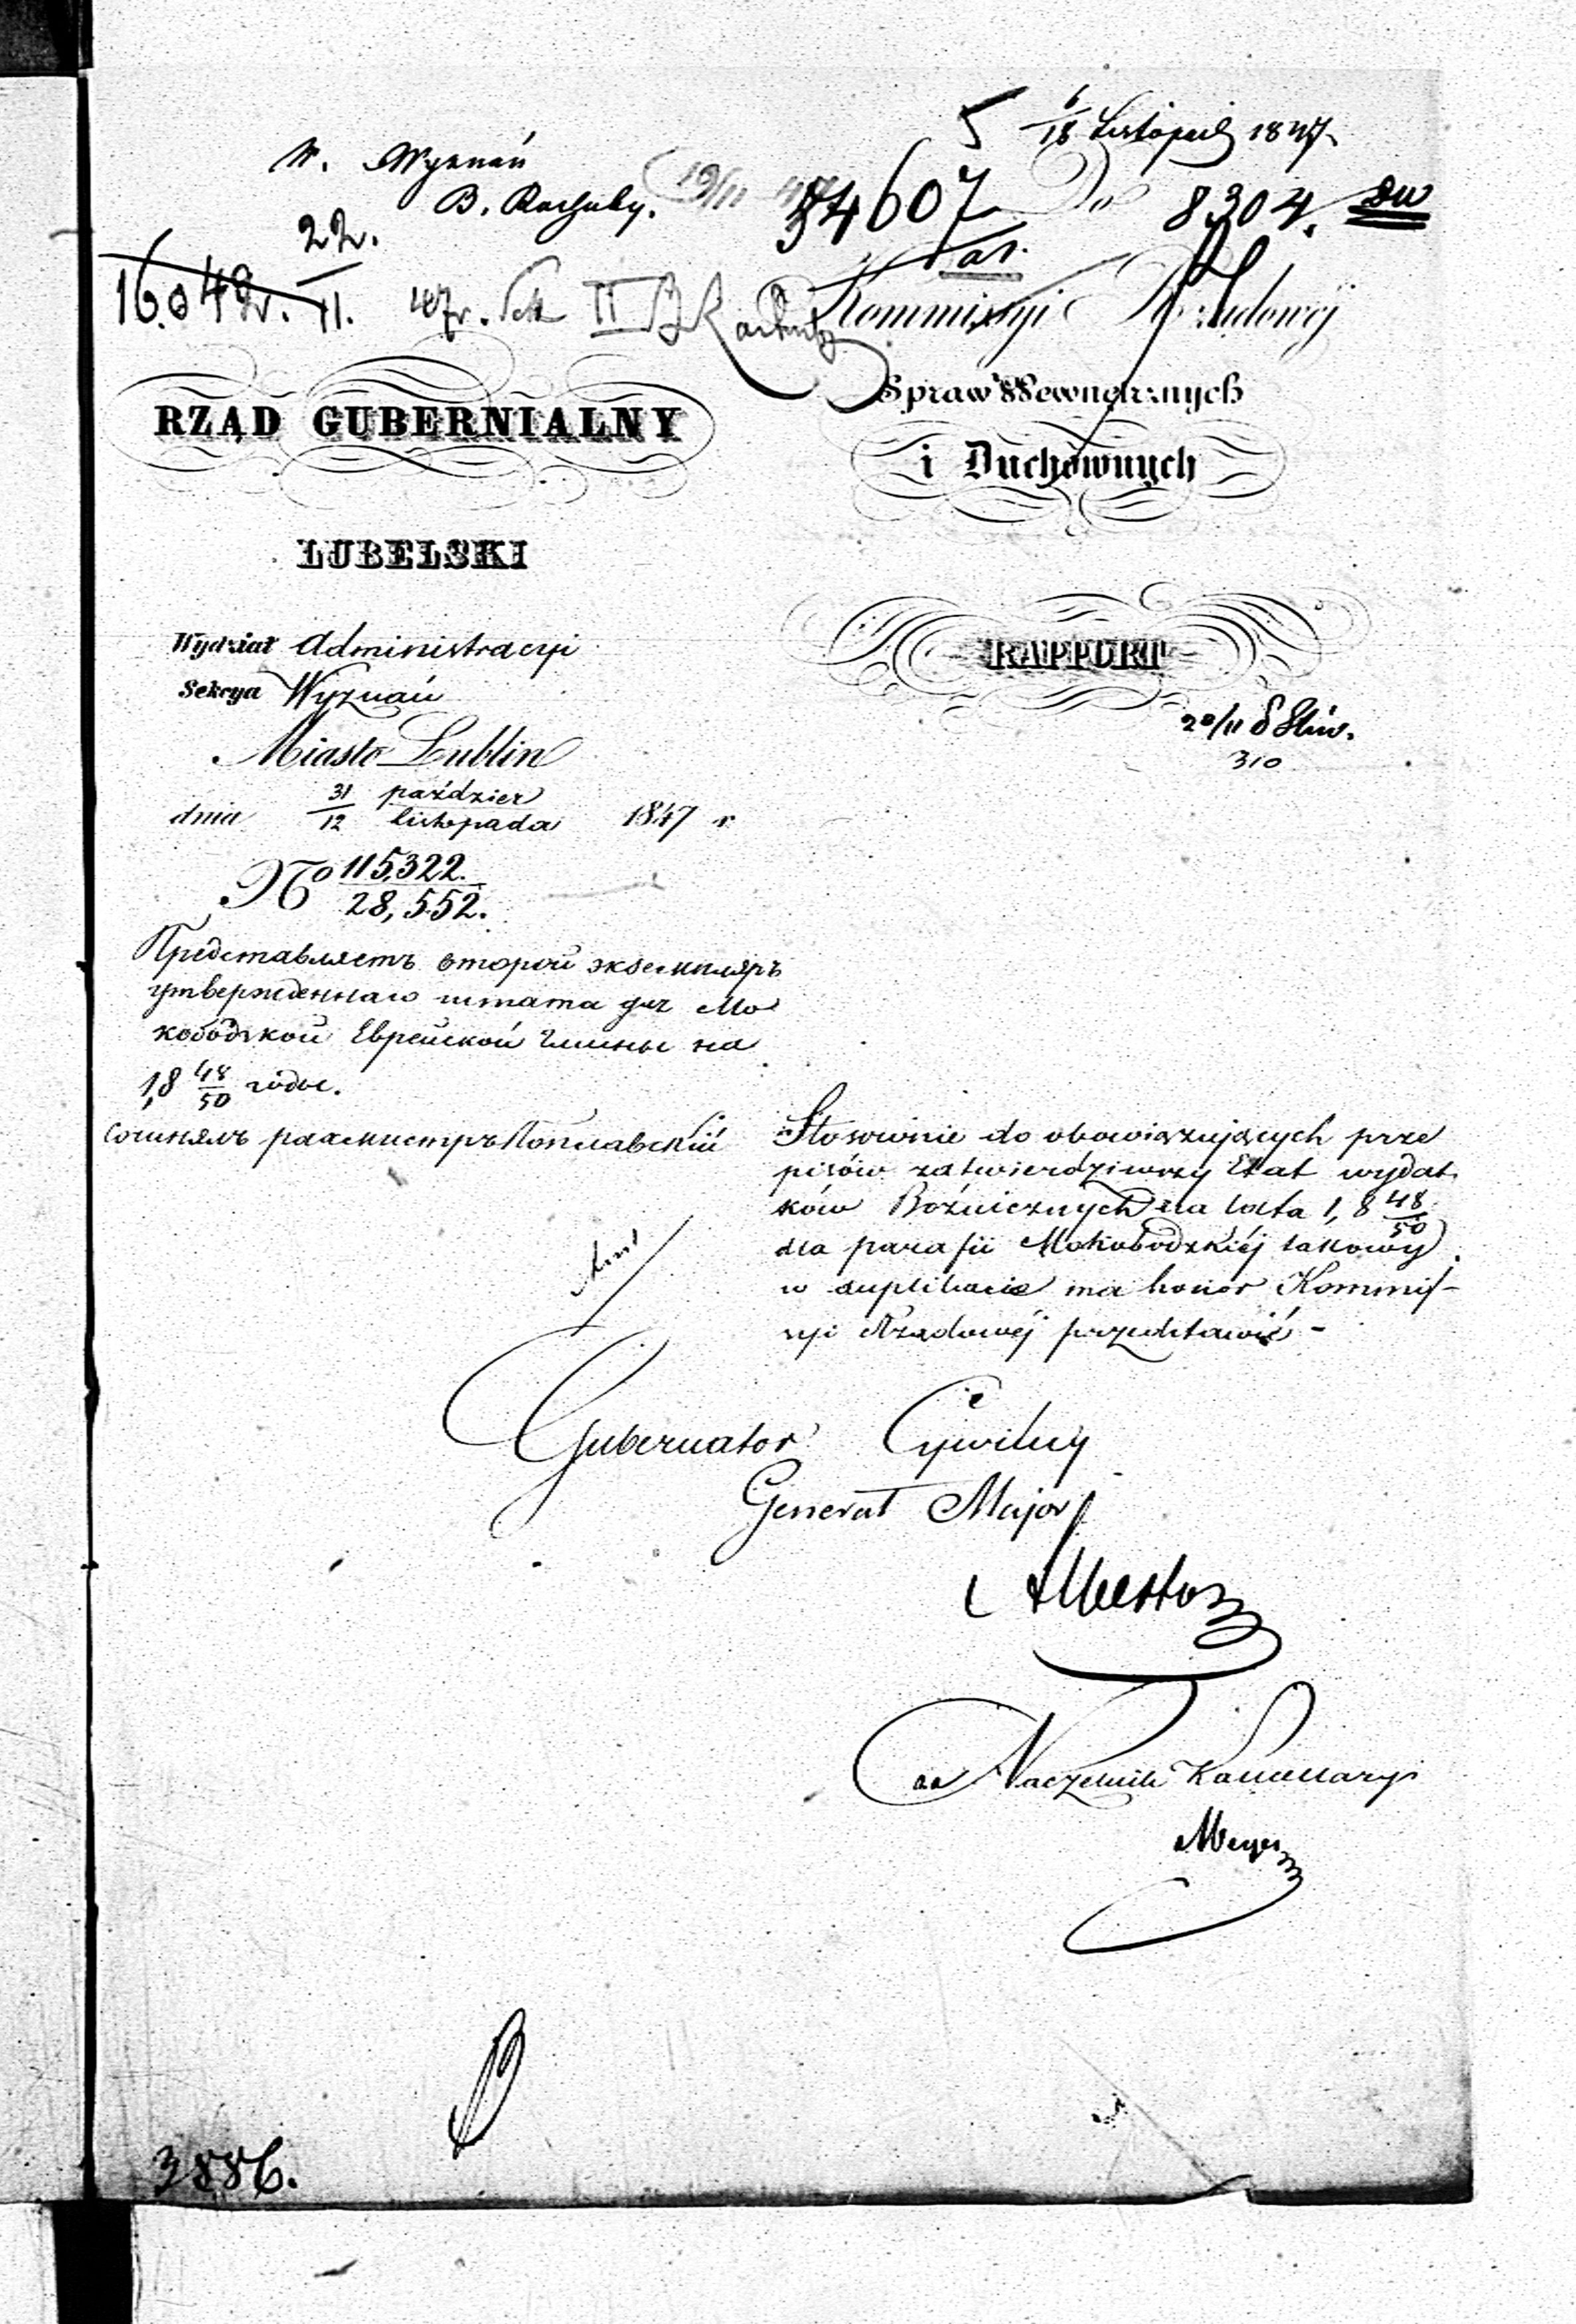 5 6/18 Listopad 1847
W. Wyznań
B. Rachuby. 19/11 47
34607 Do 8304.
22.
16.042. 11. 47r. Sek II
Kommissyi Rządowéj
Spraw Wewnętrznych
i Duchownych
RAPPORT
20/11
310
RZĄD GUBERNIALNY
LUBELSKI
Wydział Administracyi
Sekcya Wyznań
Miasto Lublin
dnia 31/12 paździer/listopada 1847 r
No 115,322.
28,552.
Представляетъ второй экземпляръ
утвержденнаго штата для Мо
кободзкой Еврейской Гмины на
18 48/50 годы.
Сочинялъ рахмистръ Поплавскій
Stosownie do obowiązujących prze
pisów zatwierdziwszy Etat wydat
ków Bóźnicznych na lata 1,8 48/50
dla parafii Mokobodzkiéj takowy
w duplikacie ma honor Kommis-
syi Rządowéj przedstawić -
Gubernator Cywilny
Generał Major
Albertow
Naczelnik Kancellaryi
Meyer
3886.